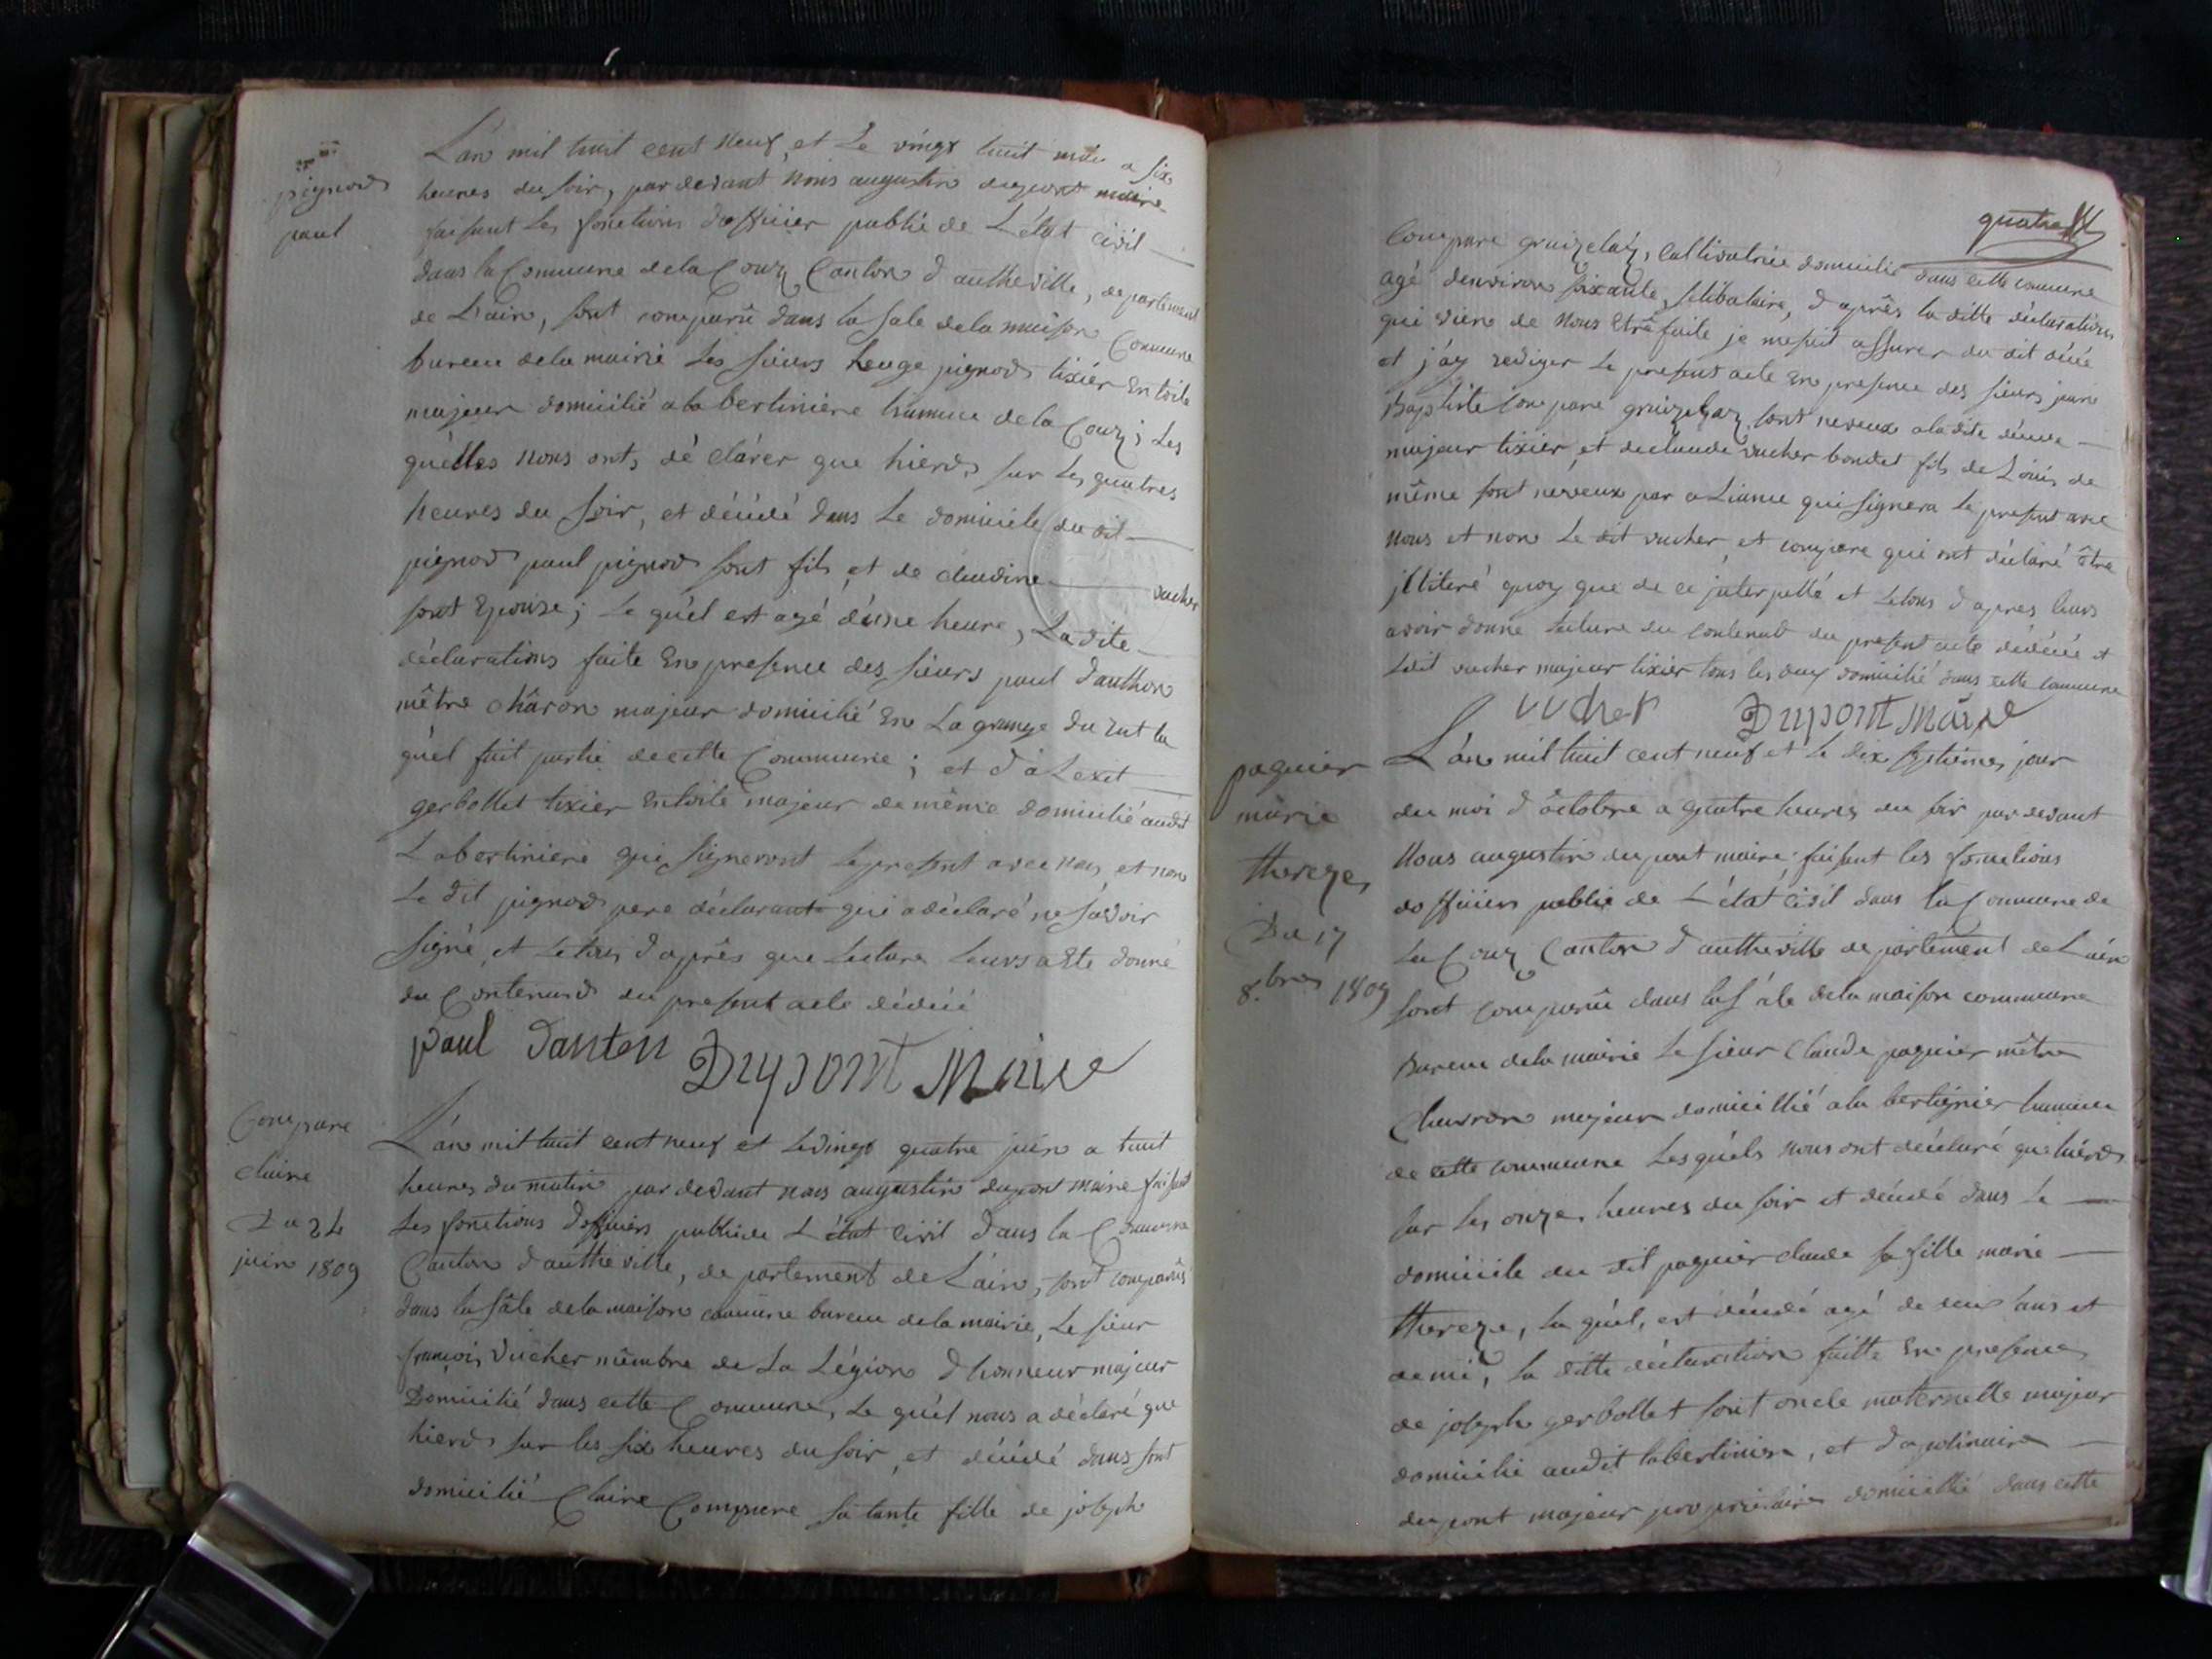 pignod
paul
L'an mil huit cent neuf, et Le vingt huit mai a six
heures du soir, par devant nous augustin dupont maire
faisant Les fonctions d'officier public de L'état civil
dans la Commune de la Coux Canton d'autheville, departement
de L'ain, sont comparû dans la sale de la maison Commune
bureau de la mairie Les sieurs pignod tixier En toile
majeur domicilié a la bertiniere hameau de la Coux; Les
quélles nous onts dé clárer que hierd sur Les quatres
heures du Soir, et décédé dans Le domicile du dit
pignod paul pignod sont fils et de claudine vucher
sont Epouse; Le quél est agé d'une heure, La dite
déclarations faite En presence des sieurs paul d'anthon
mêtre chåron majeur domicilié En La grange du
quél fait partie de cette Commune; et d'áLexit
gerbollet tixier Entoile majeur de même domicilié audit
Labertiniere qui signeront Le present avec nous et non
Le dit pignod pere déclarant qui a déclaré ne sávoir
Signé, et Letous d'aprês que Lecture Leurs a Ete donné
du Contenud du present acte décéde
paul danton Dupont Maire
Compare
claire
Du 24
juin 1809
L'an mil huit cent neuf et Le vingt quatre juin a huit
heures du matin par devant nous augustin dupont maire faisant
Les fonctions d'officiers public de L'état civil dans la Commune
Canton d'autheville, de partement de Lain, sont comparûs
dans la sâle de la maison commune bureau de la mairie, Le sieur
françois vucher mêmbre de La Légion d'honneur majeur
Domicilié dans cette Commune, Le quél nous a déclaré que
hierd sur les six heures du soir, et décédé dans sont
domicilié Claire Compare sa tante fille de joseph
quatre
Compare gruizelaz, Cultivatrice domicilié dans cette commune
agé denviron soixante, selibataire, d'aprês la ditte déclaration
qui vien de nous Etrê faite je me suit assurer du dit décé
et j'áy rediger Le present acte En presence des sieurs jean
Baptiste Compare gruizelaz sont neveux a la dite décédé
majeur tixier, et de claude vucher bondet fils de Loüis de
même sont neveux par aLiance qui signera Le present avec
nous et non Le dit vucher, et compare qui ont déclaré être
jlliteré quoy que de ce jnterpellé et Letous d'apres leurs
avoir donne lecture du contenud du present acte décédé et
Ledit vucher majeur tixier tous les deux domicilié dans cette commune
vucher Dupont Maire
paquier
marie
thereze
Du 17
8.bre 1809
L'an mil huit cent neuf et Le dix septiéme jour
du moi d'octobre a quatre heures du soir par devant
Nous augustin dupont maire faisant les fonctions
d'officier public de L'état civil dans la Commune de
La Coux Canton d'autheville departement de Lain
sont comparû dans la Sále de la maison commune
Bureau de la mairie Le sieur Claude paquier mêtre
Charron majeur domicillié a la bertignier hameau
de cette commune Lesquéls nous ont décclaré que hiérd
sur les onze heures du soir et décédé dans Le
domicile du dit paquier claude sa fille marie
thereze, La quél, est décédé agé de deux ans et
demie, La ditte déclaration faitte En presence
de joseph gerbollet sont oncle maternelle majeur
domicilie audit labertinier, et d'apolinaire
dupont majeur proprietaire domicillié dans cette